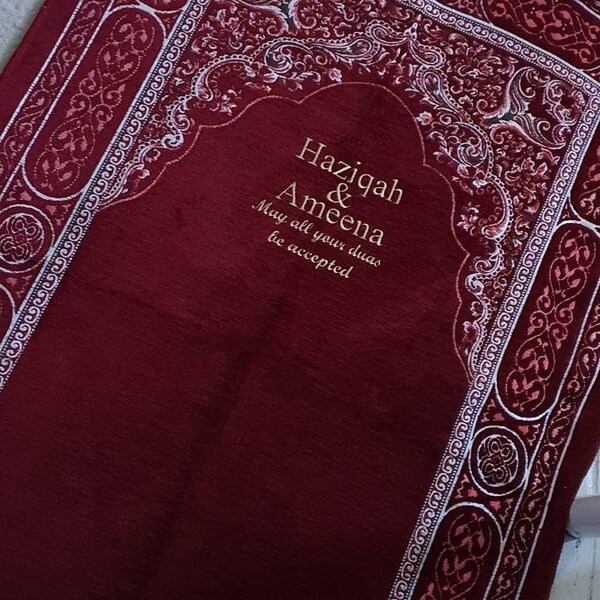 Haziqah
&
Ameena
May all your duas
be accepted